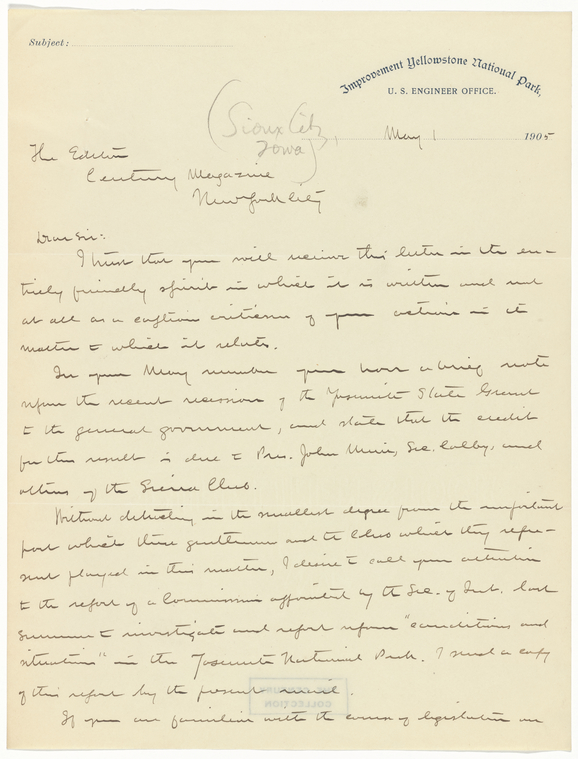 Subject:
Improvement Yellowstone National Park,
U. S. ENGINEER OFFICE.
(Sioux City,
Iowa)
May 1 1905
The Editor
Century Magazine
New York City
Dear Sir:
I trust that you will receive this letter in the en-
tirely friendly spirit in which it is written and not
at all as a captious criticism of your action in the
matter to which it relates.
In your May number you have a brief note
upon the recent recession of the Yosemite State Grant
to the general government, and state that the credit
for this result is due to Pres. John Muir, Sec. Colby, and
others of the Sierra Club.
Without detracting in the smallest degree from the important
part which these gentlemen and the Club which they repre-
sent played in this matter, I desire to call your attention
to the report of a Commission appointed by the Sec. of Int. last
summer to investigate and report upon "conditions and
situations" in the Yosemite National Park. I send a copy
of this report by the present mail.
If you are familiar with the course of legislation on
COLLECTION